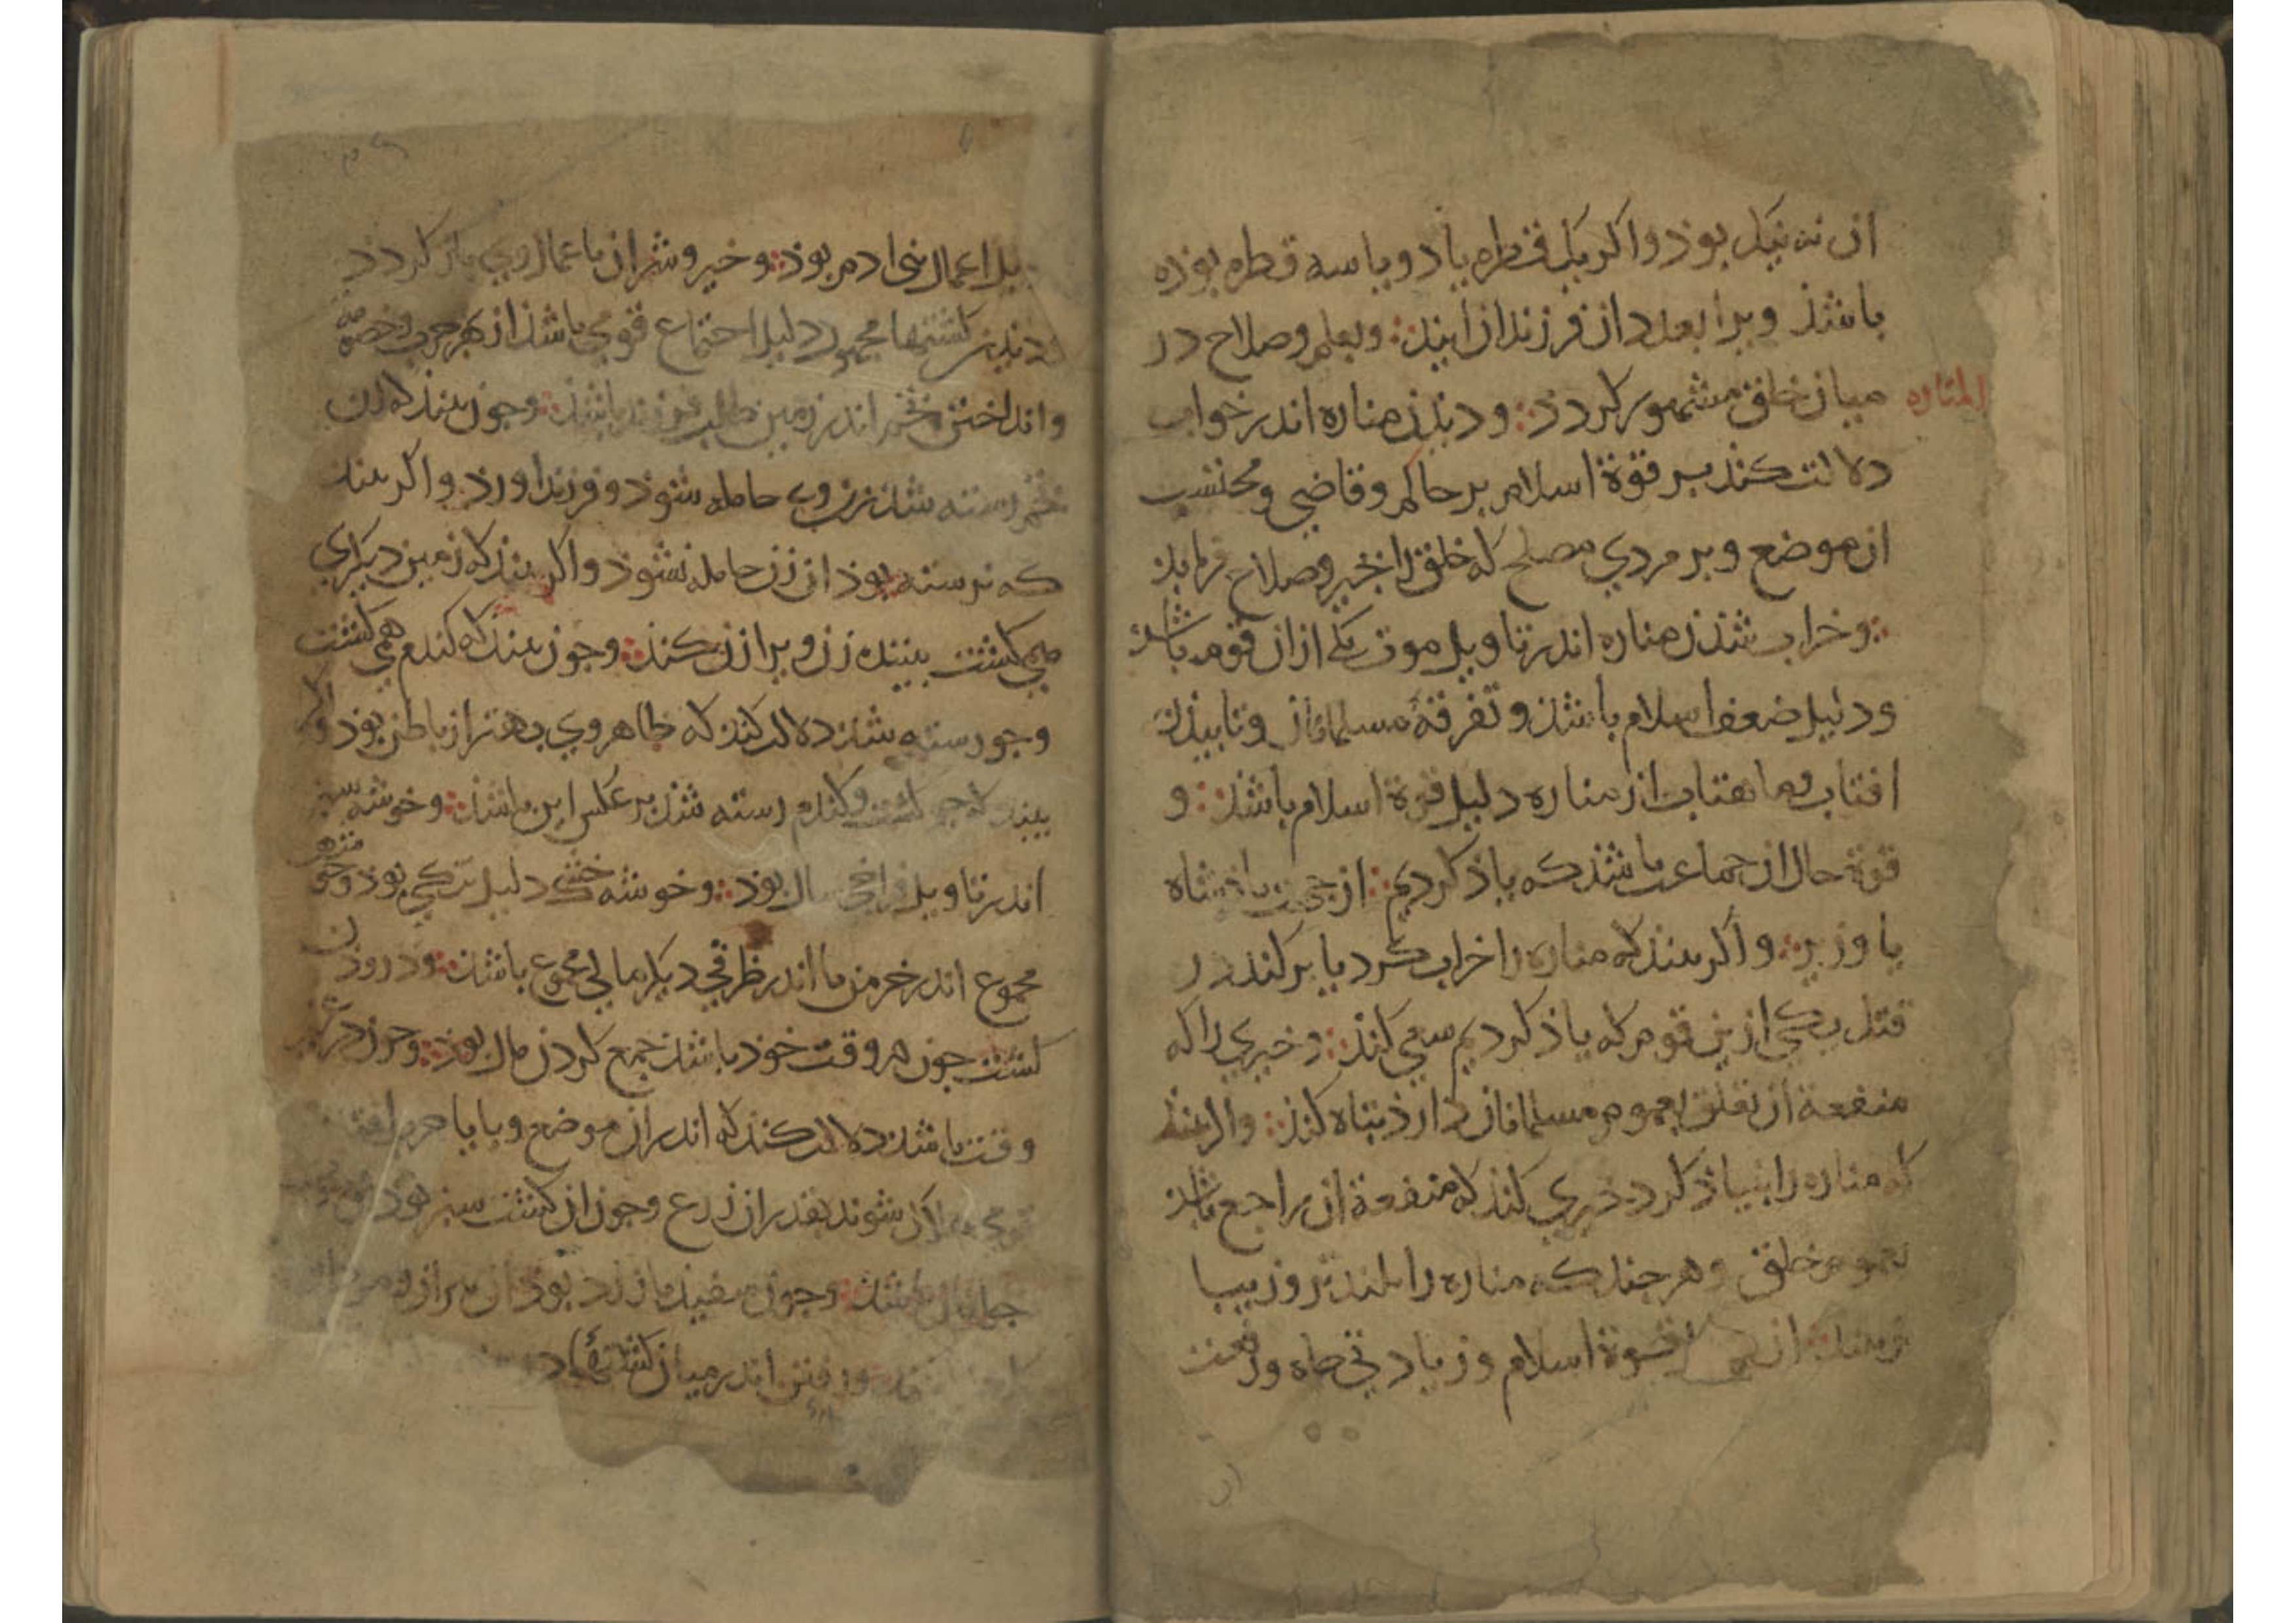 ان نه نیک بوذ واکر یک قطره یا دو یا سه قطره بوذه
باشذ ویرا بعدد ان فرزندان ایند وبعلم وصلاح در
المناره
میان خلق مشهور کردد ودیدن مناره اندر خواب
دلالت کند بر قوة اسلام بر حاکم وقاضی ومحتسب
ان موضع وبر مردی مصلح که خلق را بخیر وصلاح فرماید
وخراب شذن مناره اندر تاویل موت یکی از ان قوم باشذ
ودلیل ضعف اسلام باشذ وتفرقهٔ مسلمانان وتابیذن
افتاب وماهتاب از مناره دلیل قوة اسلام باشذ و
قوة حال ان جماعت باشذ که یاذ کردیم از جهت پاذشاه
یا وزیر واکر بیند که مناره را خراب کرد یا برکند در
قتل یکی ازین قوم که یاذ کردیم سعی کند وخیری را که
منفعة ان تعلق بعموم مسلمانان دارذ تباه کند واکر بیند
که مناره را بنیاذ کرد خیری کند که منفعة ان راجع باشذ
بعموم خلق وهرچند که مناره را بلندتر وزیبا
قوة اسلام وزیادتی جاه ورفعت
بد اعمال بنی ادم بوذ وخیر وشر ان باعمال وی باز کردد
ودیدن کشتها مجموع دلیل اجتماع قومی باشذ از بهر حرب وخصومة
وانداختن تخم اندر زمین طلب فرزند باشذ وچون بیند که ان
تخم رسته شذ زن وی حامله شوذ وفرزند اورذ واکر بیند
که نرسته بوذ ان زن حامله نشوذ واکر بیند که زمین دیکری
همی کشت بیننده زن ویرا زن کند وچون بیند که کندم همی کشت
وجو رسته شذ دلالت کند که ظاهر وی بهتر از باطن بوذ واکر
بیند که جو کشت وکندم رسته شذ بر عکس این باشذ وخوشه سبز
اندر تاویل فراخی سال بوذ وخوشه خشک دلیل تنکی بوذ وخوشه
مجموع اندر خرمن یا اندر ظرفی دیکر مالی مجموع باشذ ودرودن
کشت چون در وقت خود باشذ جمع کردن مال بوذ وچون در غیر
وقت باشذ دلالت کند که اندر ان موضع وبا یا حرب افتد
قومی هلاک شوند بقدر ان زرع وچون ان کشت سبز بوذ
جوانان باشند وچون سفید یا زرد بوذ ان پیران
ورفتن اندر میان کشتها